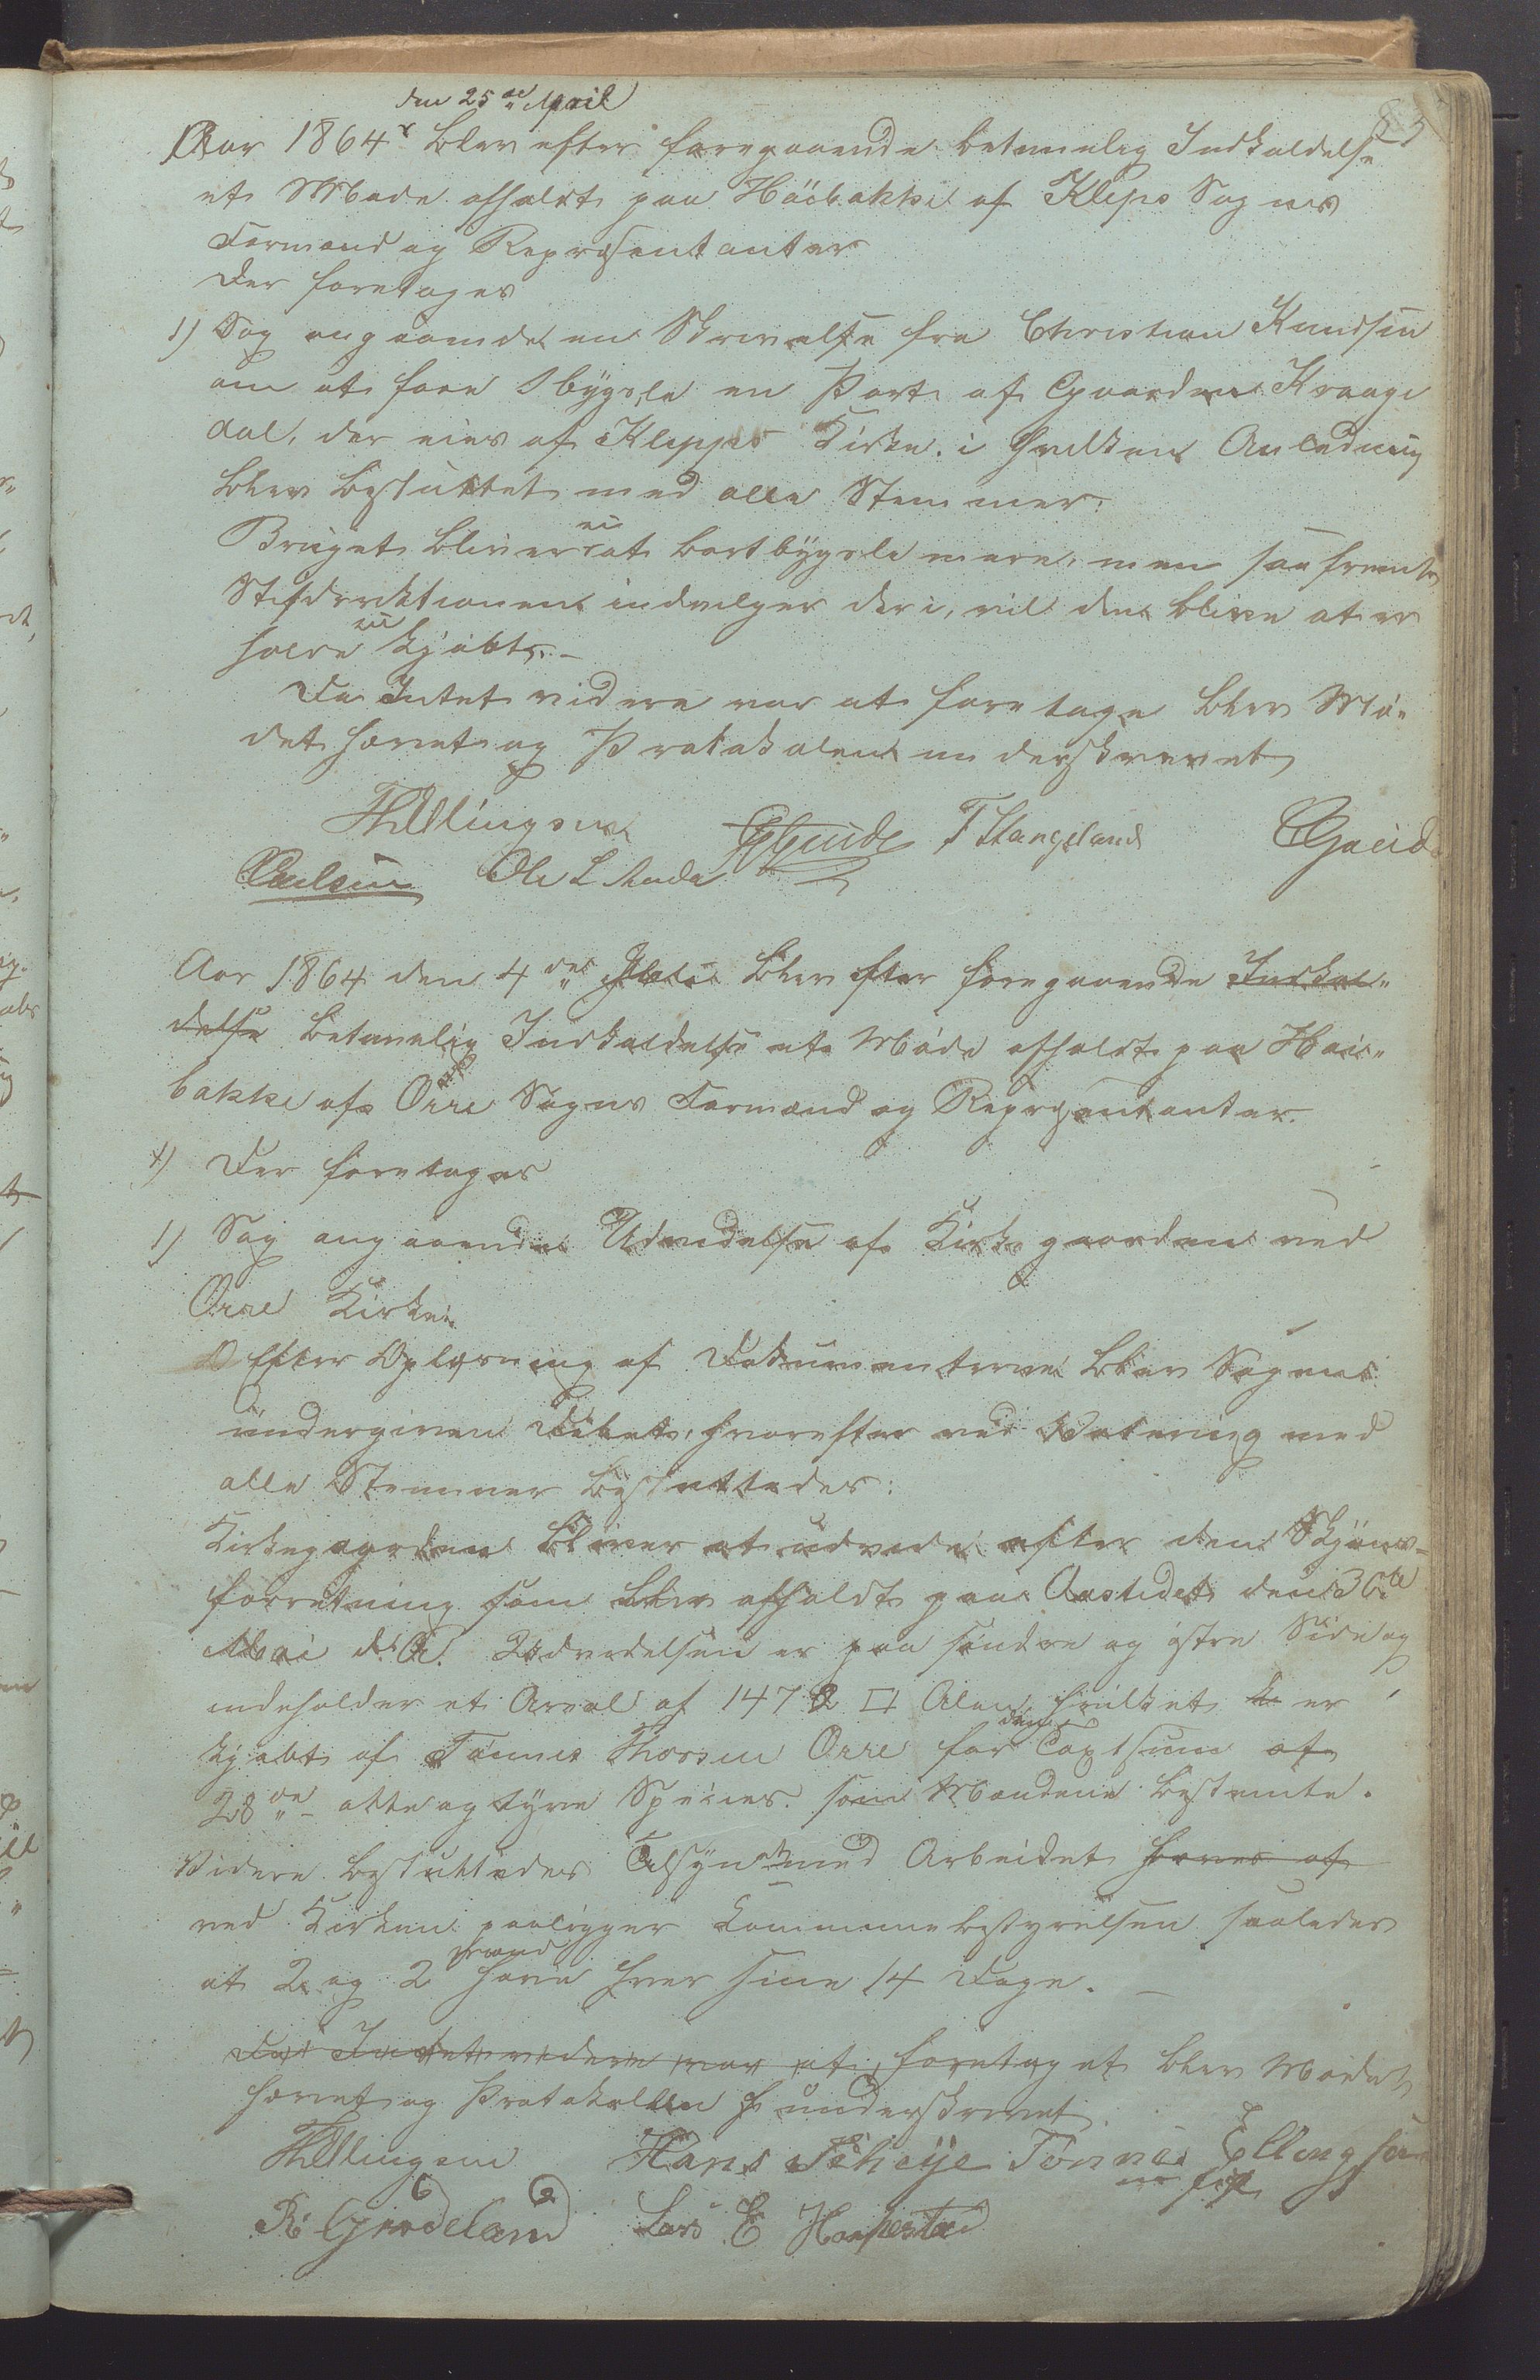 den 25de April
Aar 1864 blev efter foregaaende betimelig Indkaldelse
et Møde afholdt paa Häibakke af Kleps Sogns
Formænd og Repræsentanter
Der foretoges
1) Sag angaaende en Skrivelse fra Christian Knudsen
om at faae bÿgsle en Part af Gaarden Kraage
dal, der eies af Klepps Kirke. i hvilken Anledning
blev besluttet med alle Stemmer.
Bruget bliver ei at bortbÿgsle mere, men saafremt
Stiftdirektionen indvilger deri, vil den blive at er
holde kjøbt.
Da Intet videre var at foretage blev Mö-
det hævet og Protokolen underskrevet
TH Ellingsen T Stangeland
Ole L Anda
Aar 1864 den 4de Juli blev efter foregaaende Indkal-
delse betimelig Indkaldelse et Möde afholdt paa Häie-
bakke af Orre Sogns Formænd og Repræsentanter.
Der foretoges
1) Sag angaaende Udvidelse af Kirkegaarden ved
Orre Kirke.
Efter Oplæsning af Dokumenterne blev Sagen
undergiven Debat, hvorefter ved Votering med
alle Stemmer besluttedes:
Kirkegaarden bliver at udvide efter den Skjøns-
forretning som blev afholdt paa Aastedet den 30te
Mai d. A. Udvidelsen er paa søndre og østre Side og
indeholder et Areal af 1472 □ Alen, hvilket er
kjøbt af Tönnes Thorsen Orre for den Taxtsum af
28de otte og tyve Species. som Mændene bestemte.
Videre besluttedes Tilsyn med Arbeidet haves af
ved Kirken paaligger Kommunebestyrelsen saaledes
at 2 og 2 Mand have hver sine 14 Dage.
Da Intet videre var at foretaget blev Mödet
hævet og Protokollen underskrevet.
TH Ellingsen Hans Söheije Tönnes Ellingsen
R. Grödeland Lars E Haapestad